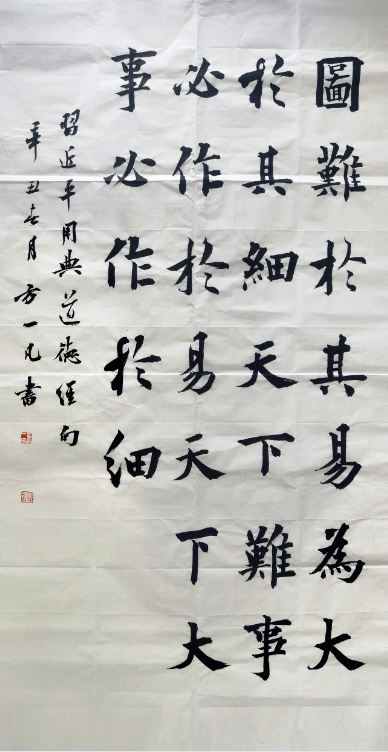 圖難於其易為大
於其細天下難事
必作於易天下大
事必作於細
習近平用典道德經句
辛丑春月方一凡書